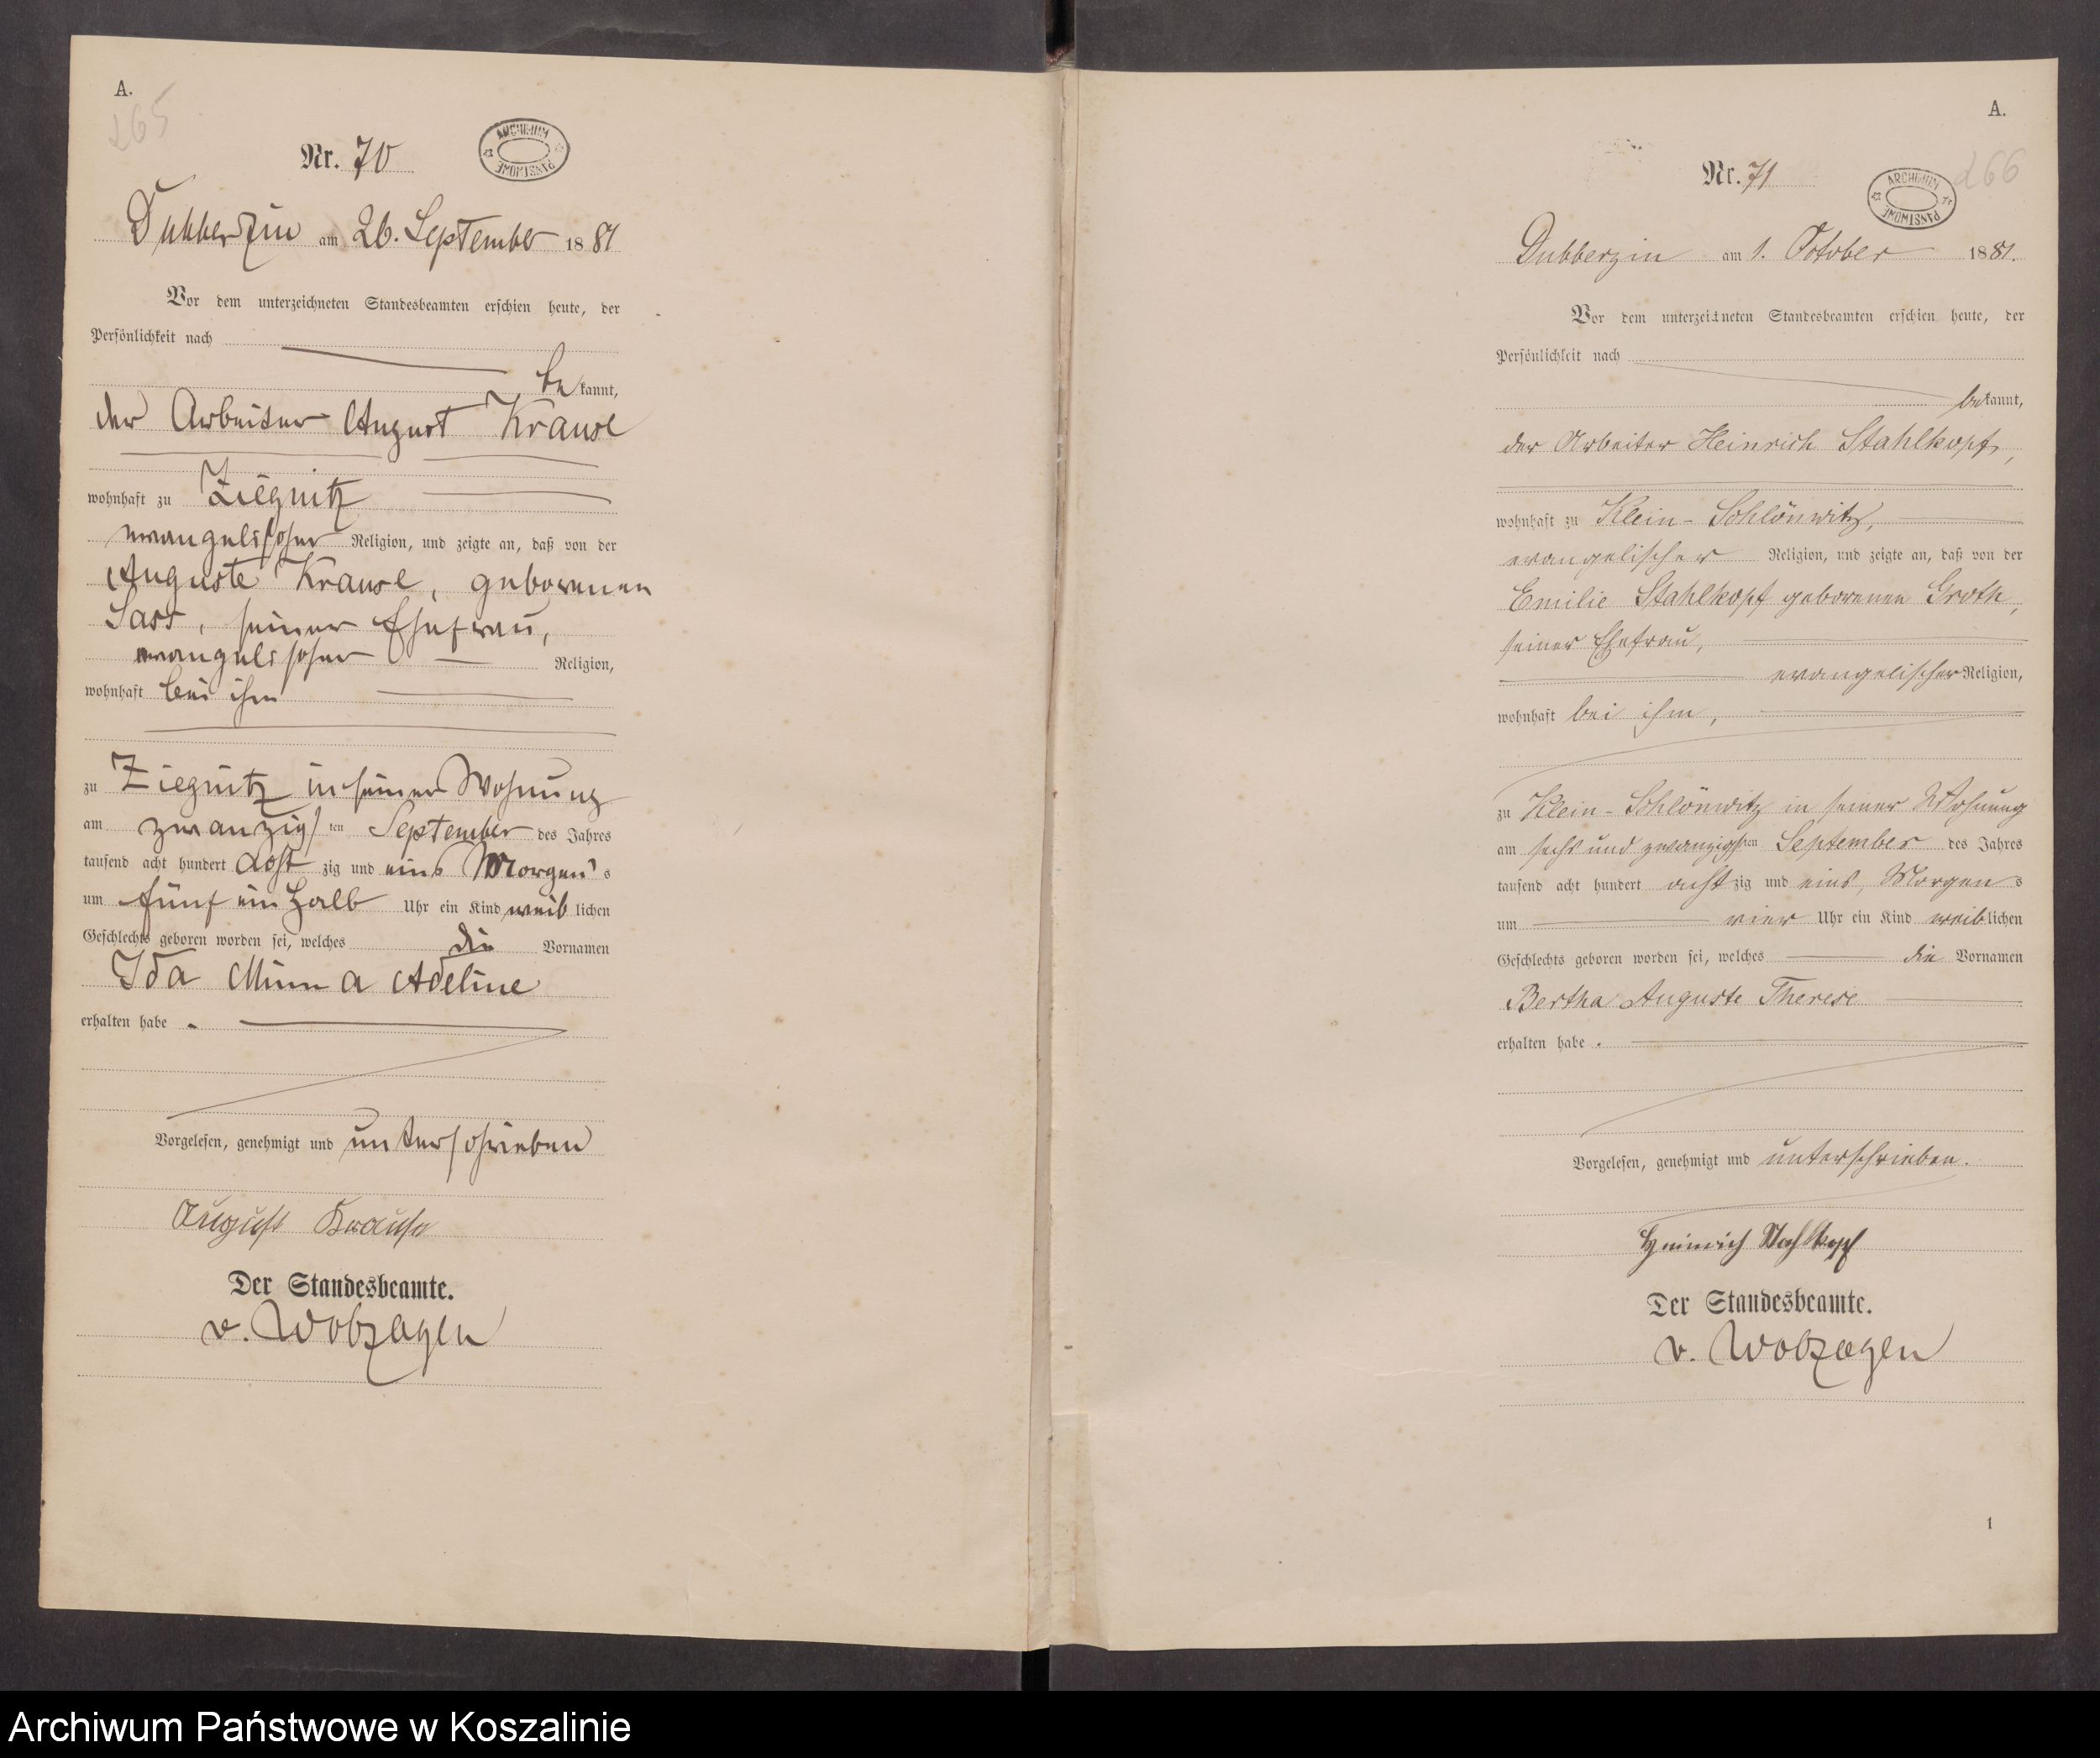 A.
265
Nr. 70
ARCHIWUM PAŃSTWOWE
Dubberzin am 26. September 1881
Vor dem unterzeichneten Standesbeamten erschien heute, der
Persönlichkeit nach
bekannt,
der Arbeiter August Krause
wohnhaft zu Ziegnitz
evangelischer Religion, und zeigte an, daß von der
Auguste Krause, geborenen
Sass, seiner Ehefrau,
evangelischer Religion,
wohnhaft bei ihm
zu Ziegnitz in seiner Wohnung
am zwanzigsten September des Jahres
tausend acht hundert achtzig und eins Morgens
um fünf ein halb Uhr ein Kind weiblichen
Geschlechts geboren worden sei, welches die Vornamen
Ida Minna Adeline
erhalten habe.
Vorgelesen, genehmigt und unterschrieben
August Krause
Der Standesbeamte.
v.
A.
266
Nr. 71
ARCHIWUM PAŃSTWOWE
Dubberzin am 1. October 1881.
Vor dem unterzeichneten Standesbeamten erschien heute, der
Persönlichkeit nach
bekannt,
der Arbeiter Heinrich Stahlkopf,
wohnhaft zu Klein-Schlönwitz,
evangelischer Religion, und zeigte an, daß von der
Emilie Stahlkopf geborenen Groth,
seiner Ehefrau,
evangelischer Religion,
wohnhaft bei ihm,
zu Klein-Schlönwitz in seiner Wohnung
am sechs und zwanzigsten September des Jahres
tausend acht hundert achtzig und eins, Morgens
um vier Uhr ein Kind weiblichen
Geschlechts geboren worden sei, welches die Vornamen
Bertha Auguste Therese
erhalten habe.
Vorgelesen, genehmigt und unterschrieben.
Heinrich Stahlkopf
Der Standesbeamte.
v.
1
Archiwum Państwowe w Koszalinie